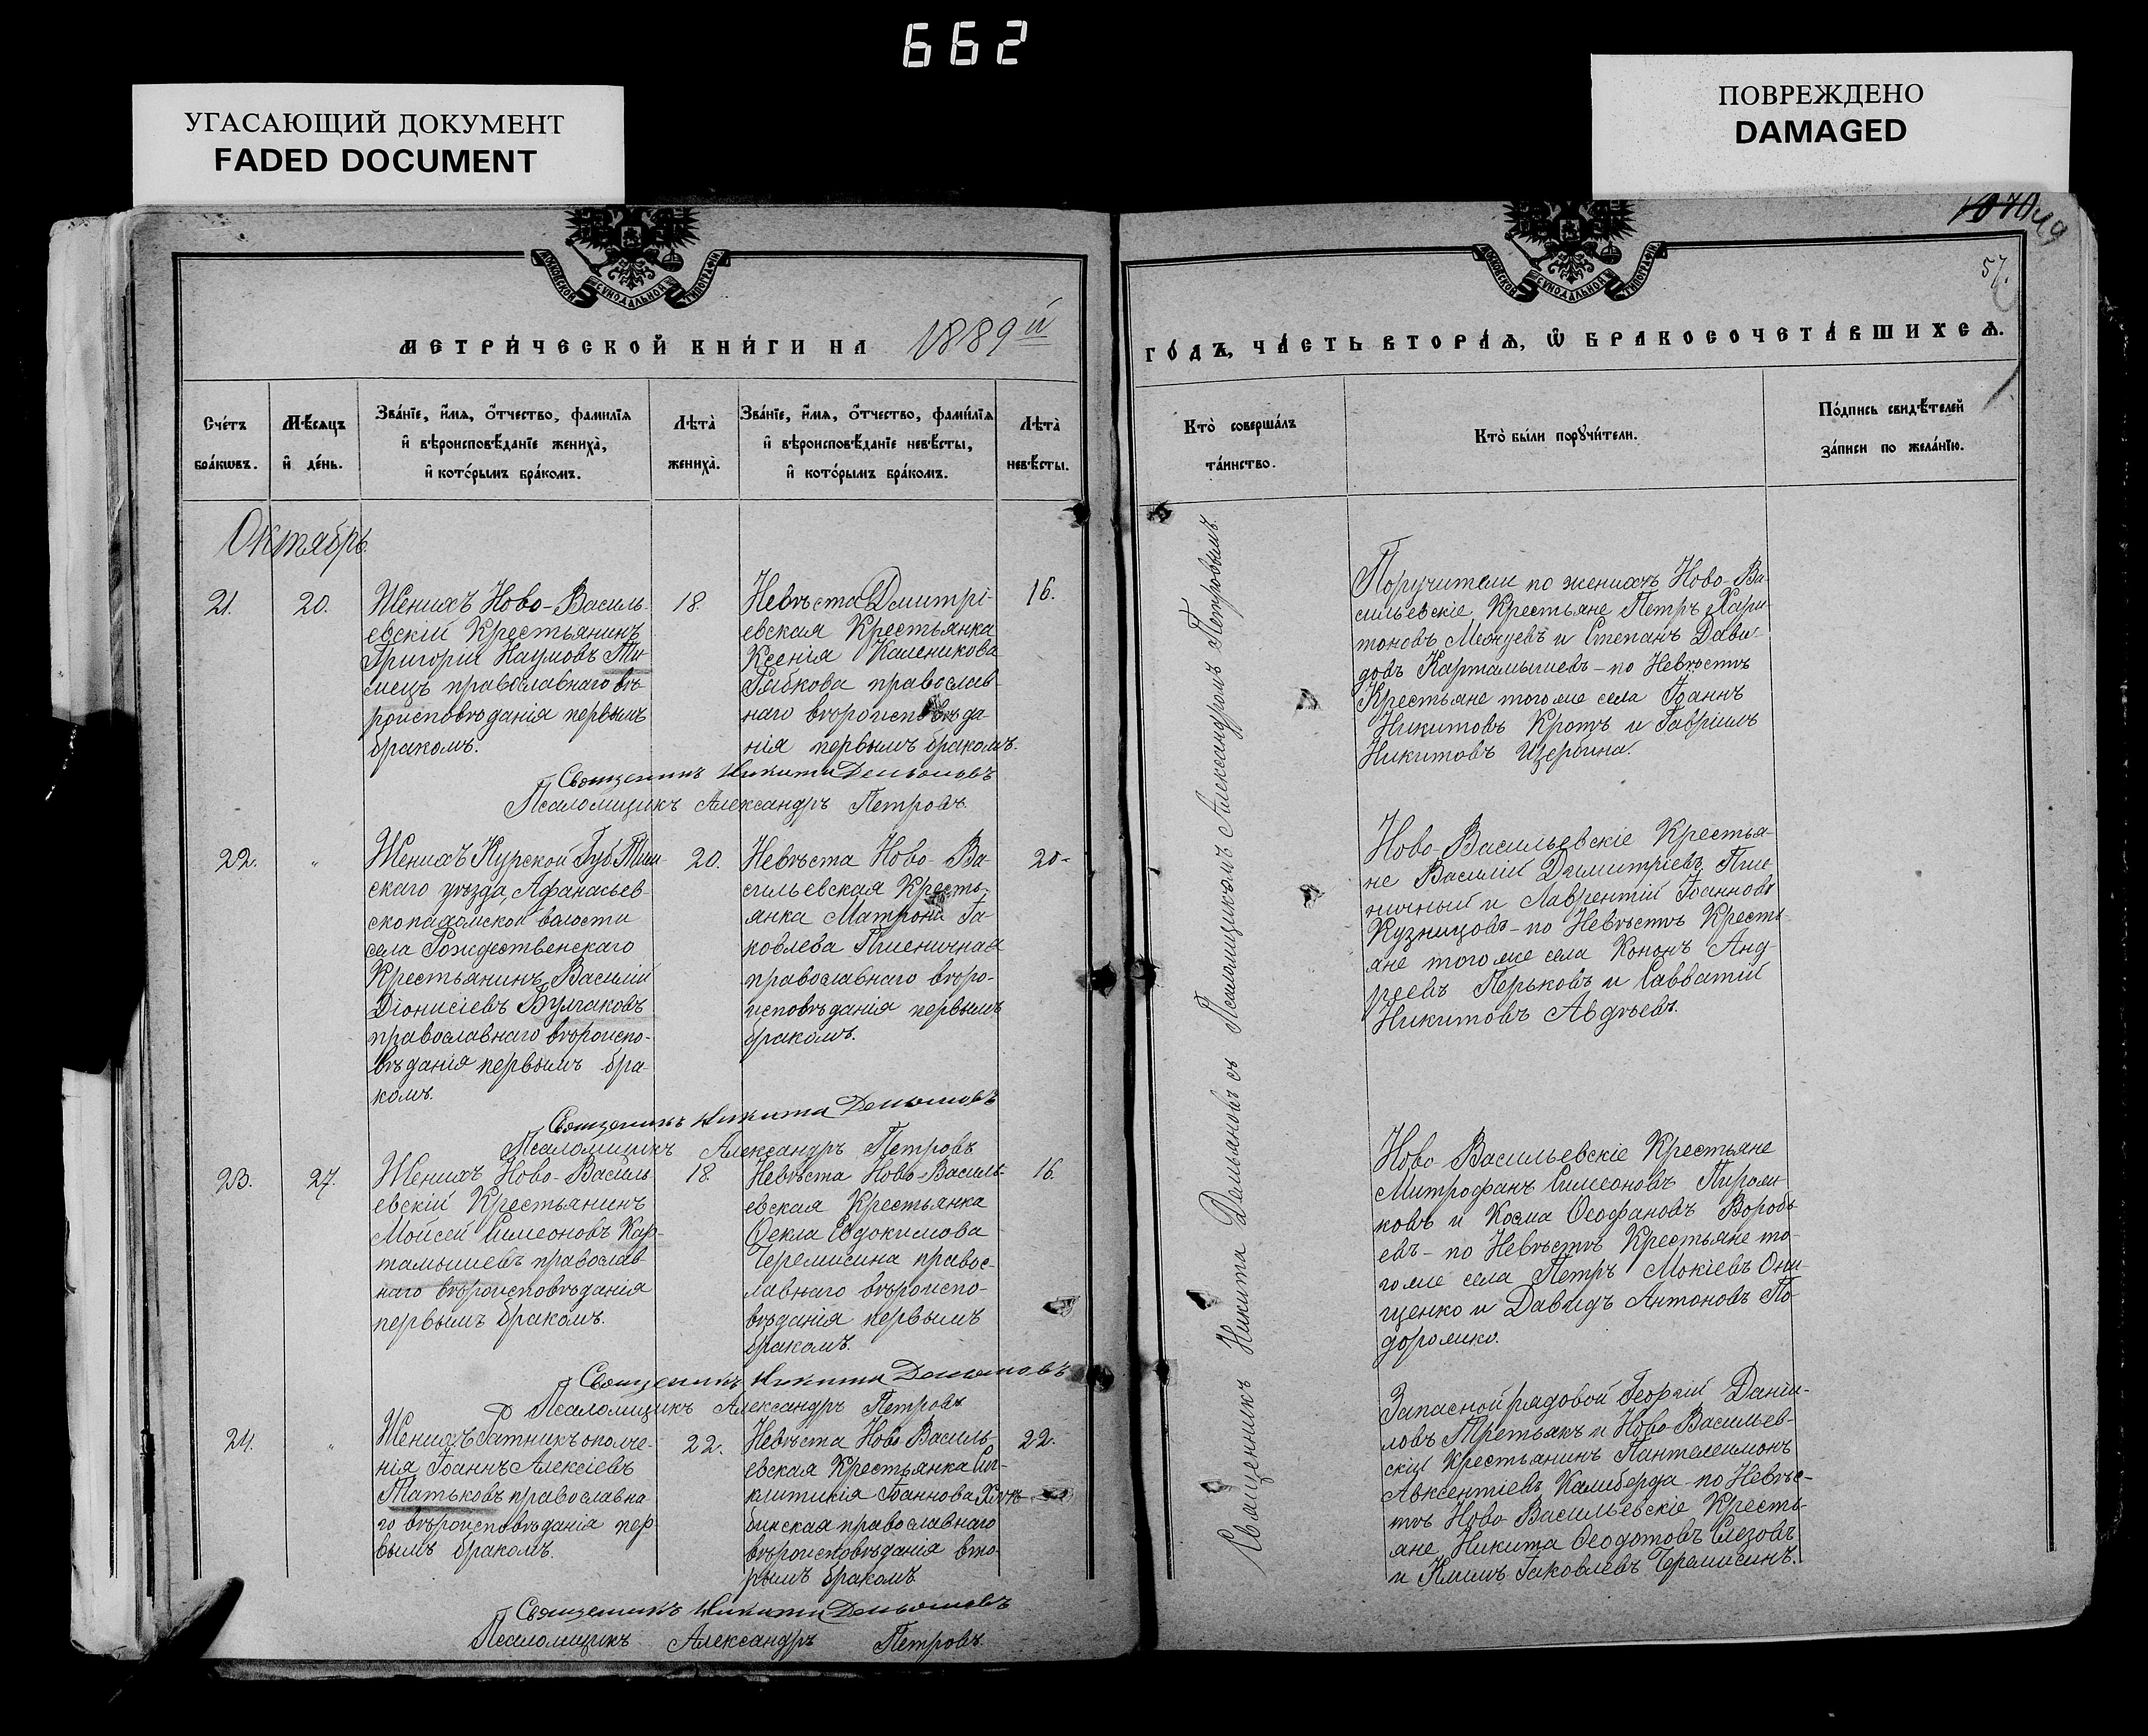 662
УГАСАЮЩИЙ ДОКУМЕНТ
FADED DOCUMENT
ПОВРЕЖДЕНО
DAMAGED
МОСКОВСКОЙ СѴНОДАЛЬНОЙ ТИПОГРАФІИ
МОСКОВСКОЙ СѴНОДАЛЬНОЙ ТИПОГРАФІИ
1070 49
57.
МЕТРИ́ЧЕСКОЙ КНИ́ГИ НА 1889й
ГО́ДЪ, ЧА́СТЬ ВТОРА́Я, Ѿ БРАКОСОЧЕТА́ВШИХСЯ.
Сче́тъ
бра́кѡвъ.
Мѣ́сяцъ
и҆ де́нь.
Зва́нїе, и҆́мя, о҆́тчество, фами́лїя
и҆ вѣроисповѣ́данїе женихà,
и҆ кото́рымъ бра́комъ.
Лѣтà
женихà.
Зва́нїе, и҆́мя, о҆́тчество, фами́лїя
и҆ вѣроисповѣ́данїе невѣ́сты,
и҆ кото́рымъ бра́комъ.
Лѣтà
невѣ́сты.
Кто̀ совершáлъ
та́инство.
Кто̀ бы́ли порꙋчи́тели.
По́дпись свидѣ́телей
за́писи по жела́нїю.
Октябрь.
21.
20.
Женихъ Ново-Василь-
евскій Крестьянинъ
Григорій Наумовъ Ти-
мецъ православнаго вѣ-
роисповѣданія первымъ
бракомъ.
18.
Невѣста Дмитрі-
евская Крестьянка
Ксенія Каленикова
Рябкова православ-
наго вѣроисповѣда-
нія первымъ бракомъ.
16.
Поручители по женихѣ Ново-Ва-
сильевскіе Крестьяне Петръ Хари-
тоновъ Межуевъ и Степанъ Дави-
довъ Картамышевъ - по Невѣстѣ
Крестьяне того же села Іоаннъ
Никитовъ Кротъ и Гавріилъ
Никитовъ Щербина.
Священникъ Никита Демьяновъ
Псаломщикъ Александръ Петровъ.
22.
"
Женихъ Курской Губ. Тим-
скаго уѣзда, Афанасьев-
скопахомской волости
села Рождественскаго
Крестьянинъ Василій
Діонисіевъ Булгаковъ
православнаго вѣроиспо-
вѣданія первымъ бра-
комъ.
20.
Невѣста Ново-Ва-
сильевская Кресть-
янка Матрона Іа-
ковлева Пшеничная
православнаго вѣро-
исповѣданія первымъ
бракомъ.
20.
Ново-Васильевскіе Крестья-
не Василій Димитріевъ Пше-
ничный и Лаврентій Іоанновъ
Кузнецовъ - по Невѣстѣ Кресть-
яне того же села Кононъ Анд-
реевъ Перьковъ и Савватій
Никитовъ Авдѣевъ.
Священникъ Никита Демьяновъ
Псаломщикъ Александръ Петровъ
23.
27.
Женихъ Ново-Василь-
евскій Крестьянинъ
Мойсей Симеоновъ Кар-
тамышевъ православ-
наго вѣроисповѣданія
первымъ бракомъ.
18.
Невѣста Ново-Василь-
евская Крестьянка
Ѳекла Евдокимова
Черемисина правос-
лавнаго вѣроиспо-
вѣданія первымъ
бракомъ.
16.
Ново-Васильевскіе Крестьяне
Митрофанъ Симеоновъ Пирож-
ковъ и Косма Ѳеофановъ Воробь-
евъ - по Невѣстѣ Крестьяне то-
го же села Петръ Мокіевъ Они-
щенко и Давидъ Антоновъ По-
дорожко.
Священникъ Никита Демьяновъ
Псаломщикъ Александръ Петровъ
24.
"
Женихъ Ратникъ ополче-
нія Іоаннъ Алексіевъ
Татьковъ православна-
го вѣроисповѣданія пер-
вымъ бракомъ.
22.
Невѣста Ново-Василь-
евская Крестьянка Син-
клитикія Іоаннова Хлѣ-
бинская православнаго
вѣроисповѣданія вто-
рымъ бракомъ
22.
Запасной рядовой Георгій Даніи-
ловъ Третьякъ и Ново-Васильев-
скій Крестьянинъ Пантелеимонъ
Авксентіевъ Камберда - по Невѣс-
тѣ Ново-Васильевскіе Кресть-
яне Никита Ѳеодотовъ Слезовъ
и Климъ Іаковлевъ Черемисинъ.
Священникъ Никита Демьяновъ
Псаломщикъ Александръ Петровъ.
Священникъ Никита Демьяновъ съ Псаломщикомъ Александромъ Петровымъ.